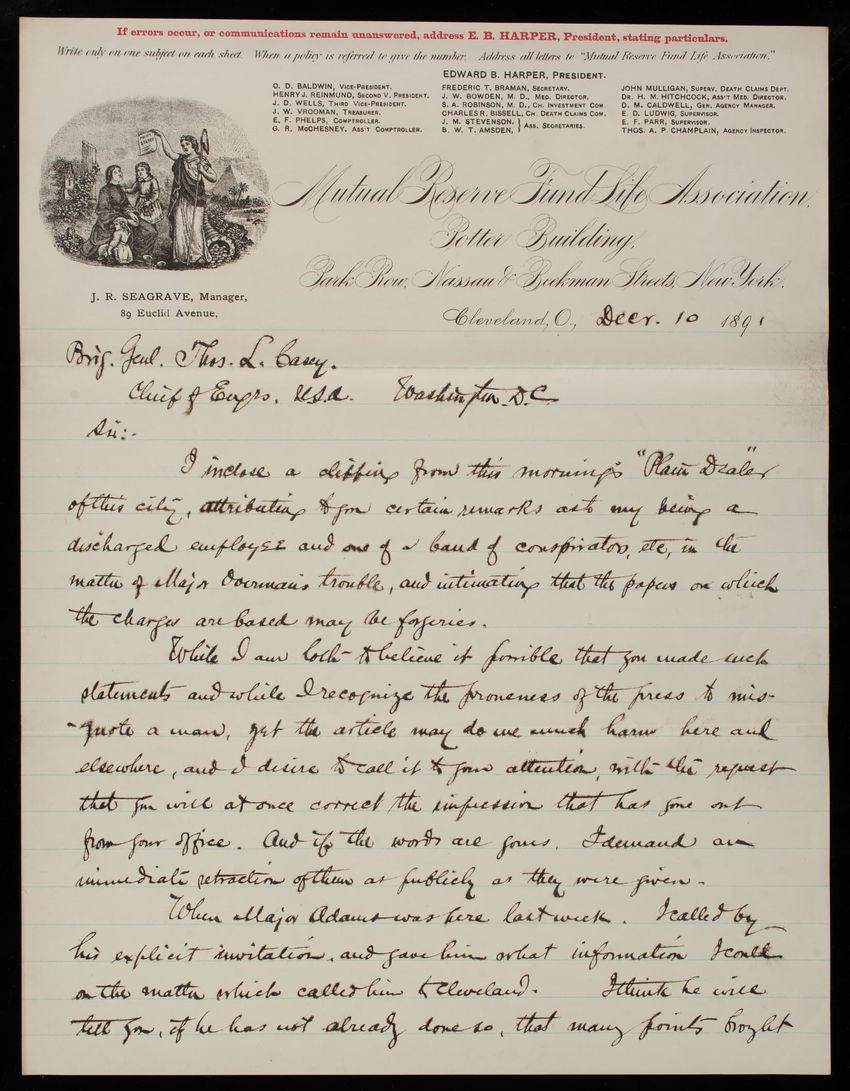 If errors occur, or communications remain unanswered, address E. B. HARPER, President, stating particulars.
Write only on one subject on each sheet. When a policy is referred to give the number. Address all letters to "Mutual Reserve Fund Life Association."
EDWARD B. HARPER, PRESIDENT.
O. D. BALDWIN, VICE-PRESIDENT.
HENRY J. REINMUND, SECOND V. PRESIDENT.
J. D. WELLS, THIRD VICE-PRESIDENT.
J. W. VROOMAN, TREASURER.
E. F. PHELPS, COMPTROLLER.
G. R. McCHESNEY, ASS'T COMPTROLLER.
FREDERIC T. BRAMAN, SECRETARY.
J. W. BOWDEN, M. D., MED. DIRECTOR.
S. A. ROBINSON, M. D., CH. INVESTMENT COM.
CHARLES R. BISSELL, CH. DEATH CLAIMS COM.
J. M. STEVENSON,
B. W. T. AMSDEN, } ASS. SECRETARIES.
JOHN MULLIGAN, SUPERV. DEATH CLAIMS DEPT.
DR. H. M. HITCHCOCK, ASS'T MED. DIRECTOR.
D. M. CALDWELL, GEN. AGENCY MANAGER.
E. D. LUDWIG, SUPERVISOR.
E. F. PARR, SUPERVISOR.
THOS. A. P. CHAMPLAIN, AGENCY INSPECTOR.
Mutual Reserve Fund Life Association,
Potter Building,
Park Row, Nassau & Beekman Streets, New York.
J. R. SEAGRAVE, Manager,
89 Euclid Avenue,
Cleveland, O., Decr. 10 1891
Brig. Genl. Thos. L. Casey.
Chief of Engrs. U.S.A. Washington D.C.
Sir:-
I inclose a clipping from this morning's "Plain Dealer"
of this city, attributing to you certain remarks as to my being a
discharged employee and one of a band of conspirators, etc, in the
matter of Major Overman's trouble, and intimating that the papers on which
the charges are based may be forgeries.
While I am loth to believe it possible that you made such
statements and while I recognize the proneness of the press to mis-
-quote a man, yet the article may do me much harm here and
elsewhere, and I desire to call it to your attention, with the request
that you will at once correct the impression that has gone out
from your office. And if the words are yours, I demand an
immediate retraction of them as publicly as they were given.
When Major Adams was here last week. I called by
his explicit invitation, and gave him what information I could
on the matter which called him to Cleveland. I think he will
tell you, if he has not already done so, that many points brought